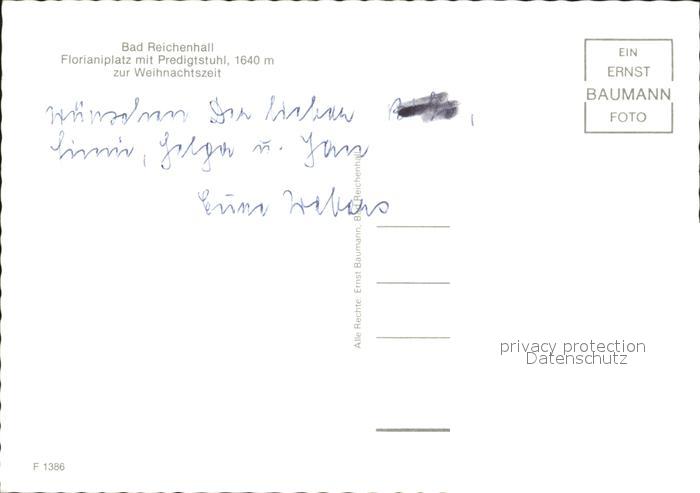 Bad Reichenhall
Florianiplatz mit Predigtstuhl, 1640 m
zur Weihnachtszeit
EIN
ERNST
BAUMANN
FOTO
wünschen Dir lieber
Helga u. Jan
Eure Webers
Alle Rechte: Ernst Baumann, Bad Reichenhall
privacy protection
Datenschutz
F 1386